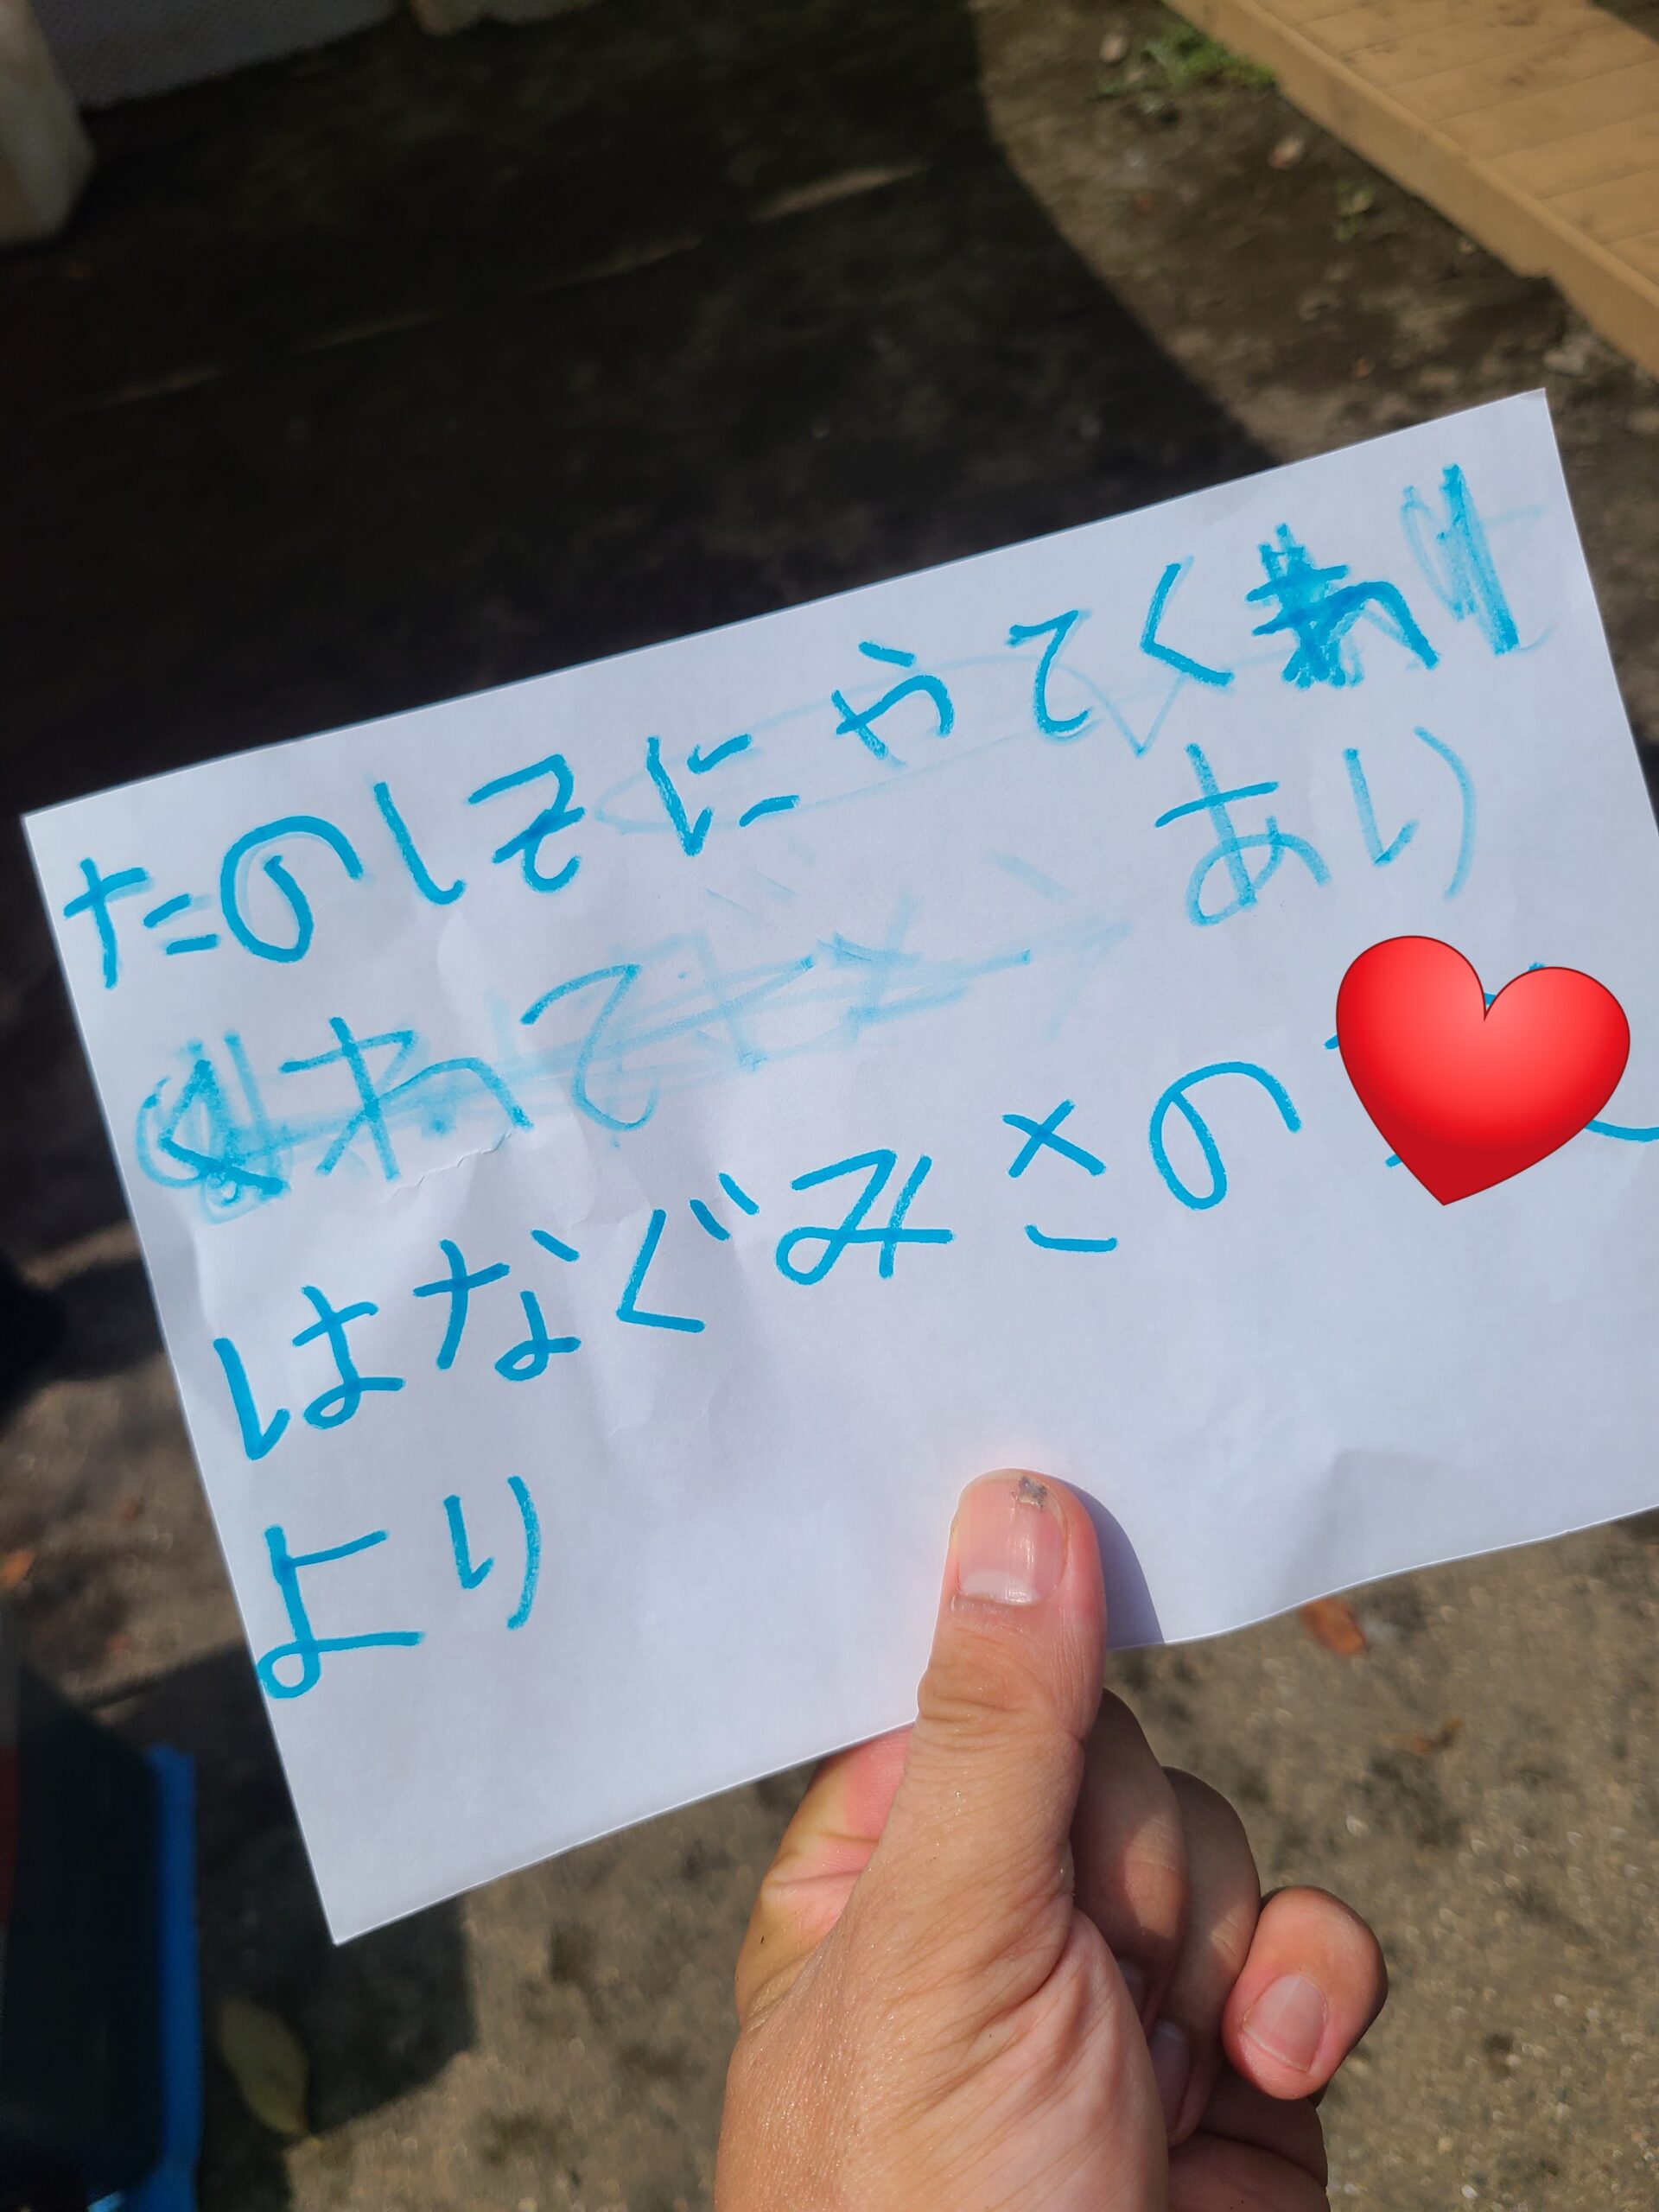 たのしそにやてくれ
あり
くれて
はなぐみさの
より